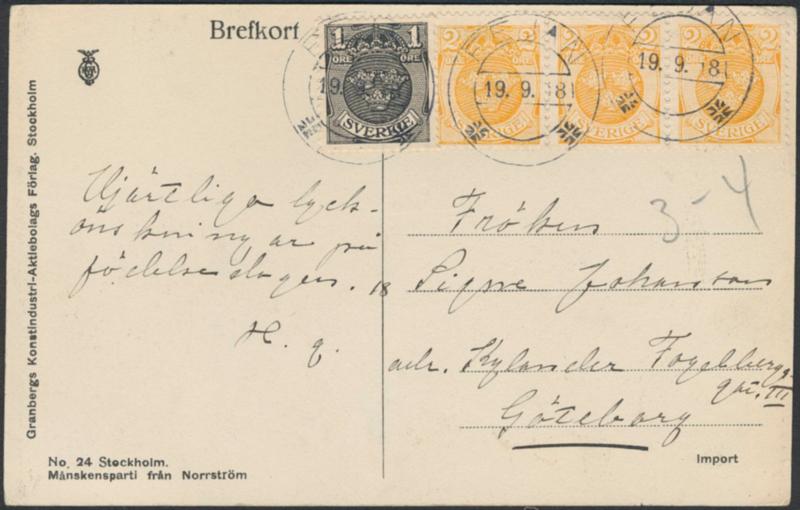 Brefkort
1 ÖRE SVERIGE
2 ÖRE 2 SVERIGE
2 ÖRE 2 SVERIGE
2 ÖRE 2 SVERIGE
19. 9. 18
19. 9. 18
19. 9. 18
Granbergs Konstindustri-Aktiebolags Förlag. Stockholm
Hjärtliga lyck-
önskningar på
födelsedagen. 18
H. g.
3-4
Fröken
Signe Johanson
adr. Kylander Fogelbergs-
gat. III
Göteborg
No. 24 Stockholm.
Månskensparti från Norrström
Import